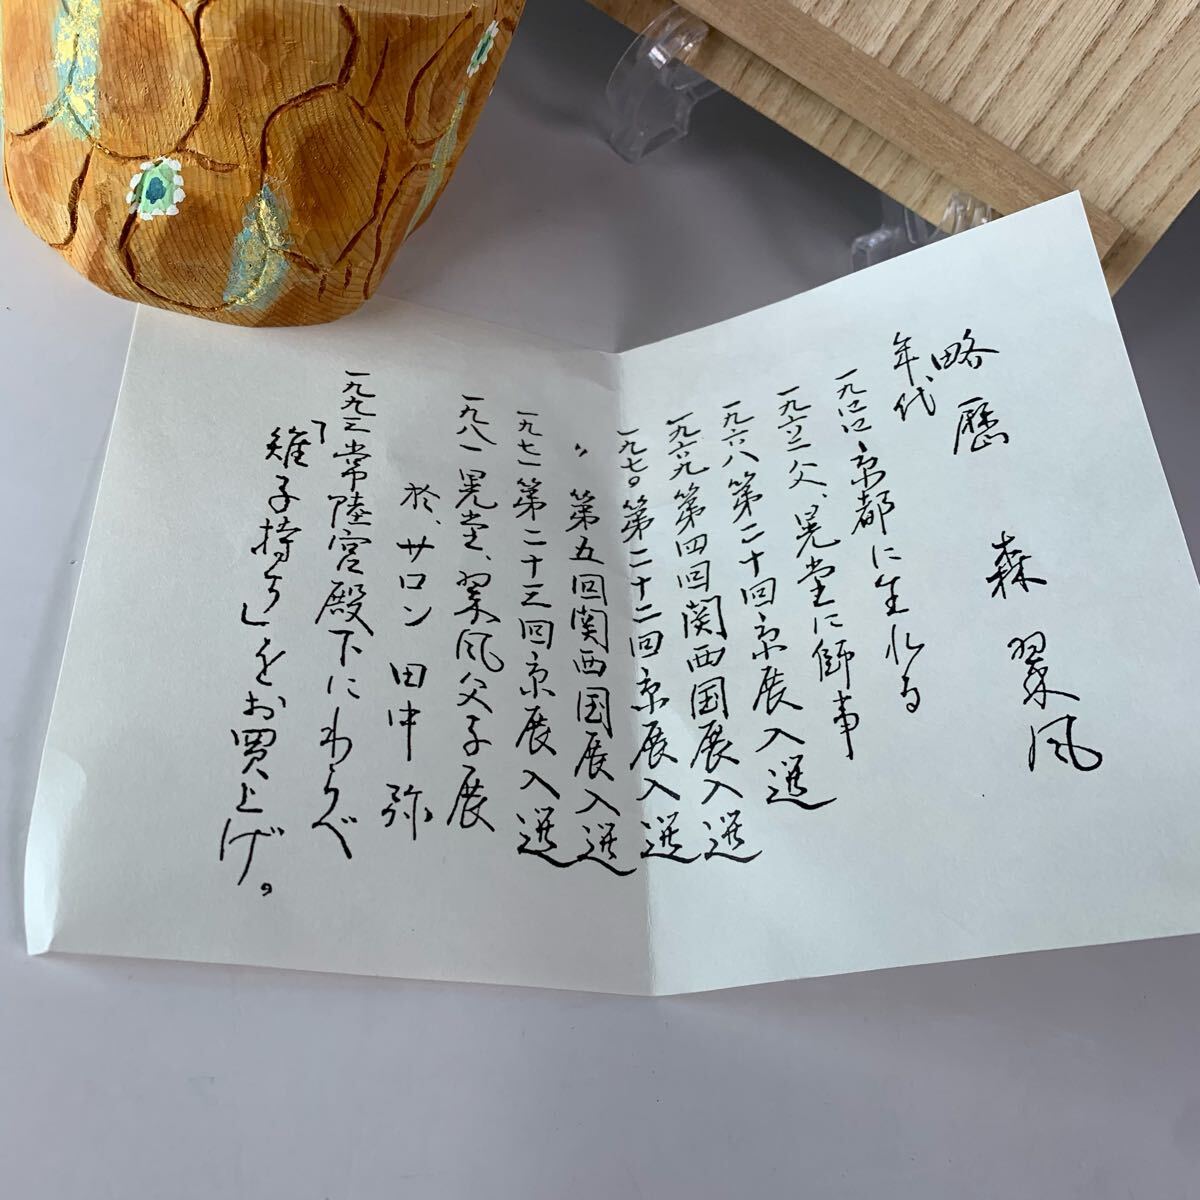 略歴 森 翠風
年代
一九四四 京都に生れる
一九六二 父、晃堂に師事
一九六八 第二十回京展入選
一九六九 第四回関西国展入選
一九七〇 第二十二回京展入選
〃 第五回関西国展入選
一九七一 第二十三回京展入選
一九八一 晃堂、翠風父子展
於、サロン 田中 弥
一九九三 常陸宮殿下にわらべ
「雉子持ち」をお買上げ。